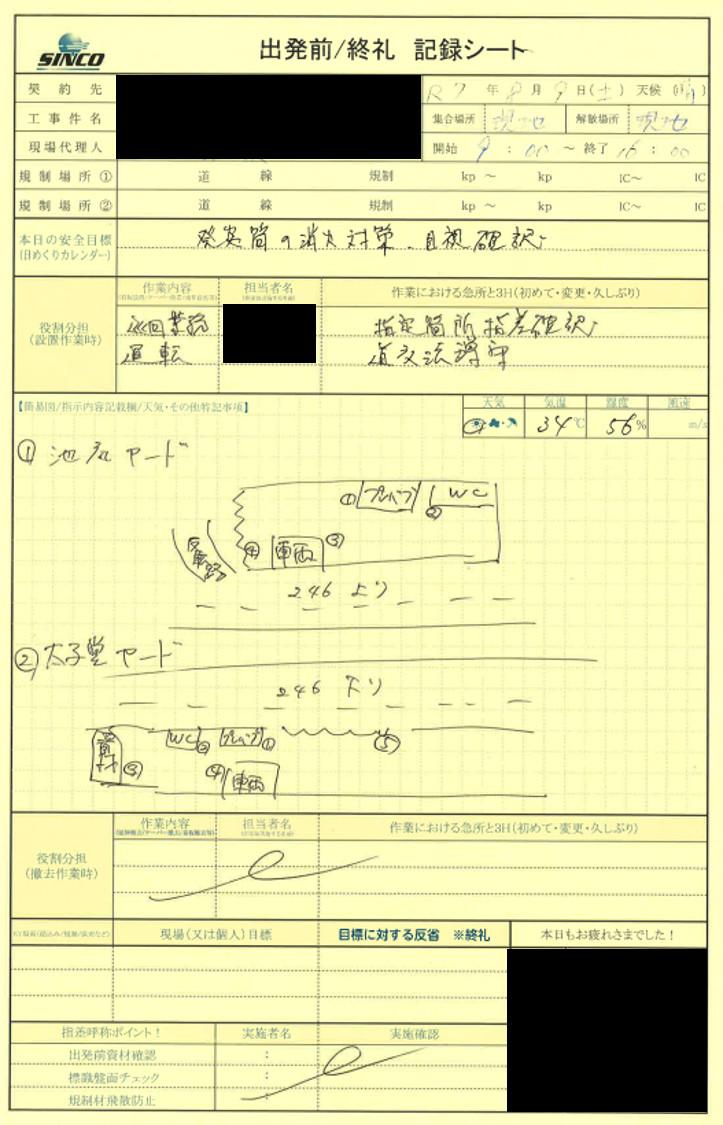 SINCO
出発前/終礼 記録シート
契約先
R7年8月9日(土) 天候(晴)
工事件名
集合場所 現地 解散場所 現地
現場代理人
開始 9:00~終了16:00
規制場所① 道 線 規制 kp ~ kp IC~ IC
規制場所② 道 線 規制 kp ~ kp IC~ IC
本日の安全目標
(日めくりカレンダー)
の消火対策、目視確認
役割分担
(設置作業時)
作業内容 担当者名 作業における急所と3H(初めて・変更・久しぶり)
巡回業務 指定箇所指差確認
運転 道交法遵守
【簡易図/指示内容記載欄/天気・その他特記事項】
天気 気温 湿度 風速
34℃ 56% m/s
① 池尻ヤード
① プレハブ WC
②
④ 車両 ③
246 上り
② 太子堂ヤード
246 下り
WC ② プレハブ ① ⑤
資材 ③ ④ 車両
役割分担
(撤去作業時)
作業内容 担当者名 作業における急所と3H(初めて・変更・久しぶり)
現場(又は個人)目標 目標に対する反省 ※終礼 本日もお疲れさまでした!
指差呼称ポイント! 実施者名 実施確認
出発前資材確認 :
標識盤面チェック :
規制材飛散防止 :